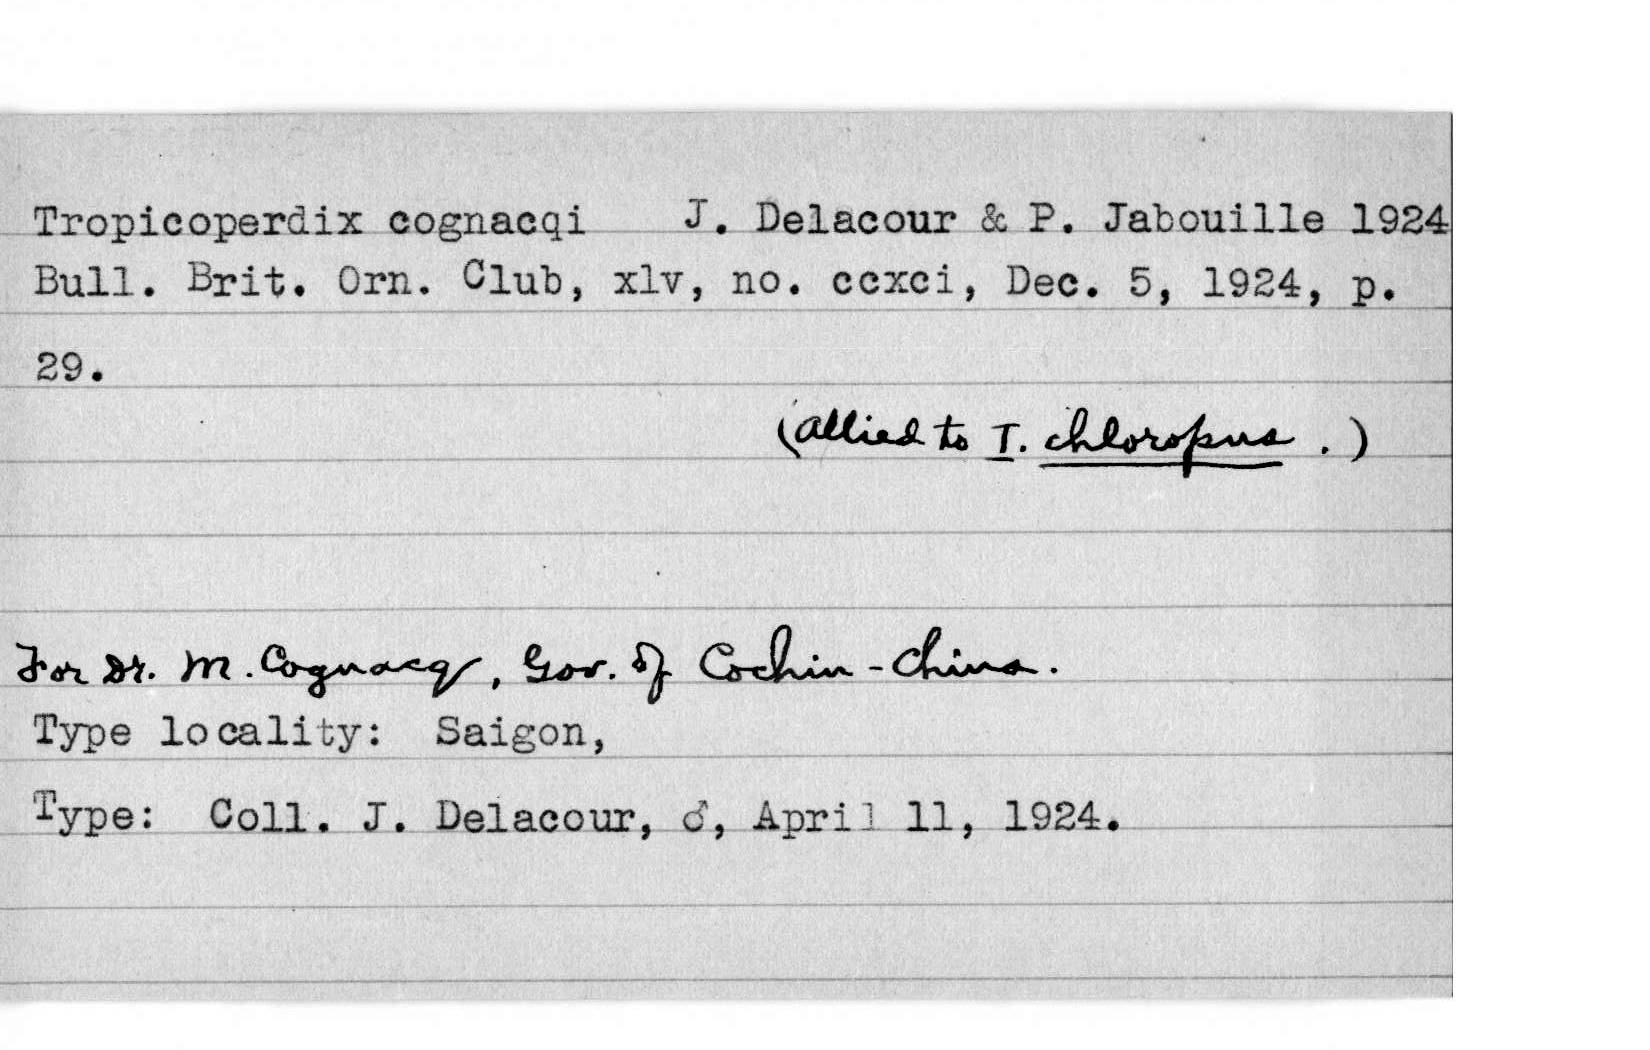 Tropicoperdix cognacqi J. Delacour & P. Jabouille 1924
Bull. Brit. Orn. Club, xlv, no. ccxci, Dec. 5, 1924, p.
29.
(Allied to T. chloropus.)
For Dr. M. Cognacq, Gov. of Cochin-China.
Type locality: Saigon,
Type: Coll. J. Delacour, ♂, April 11, 1924.